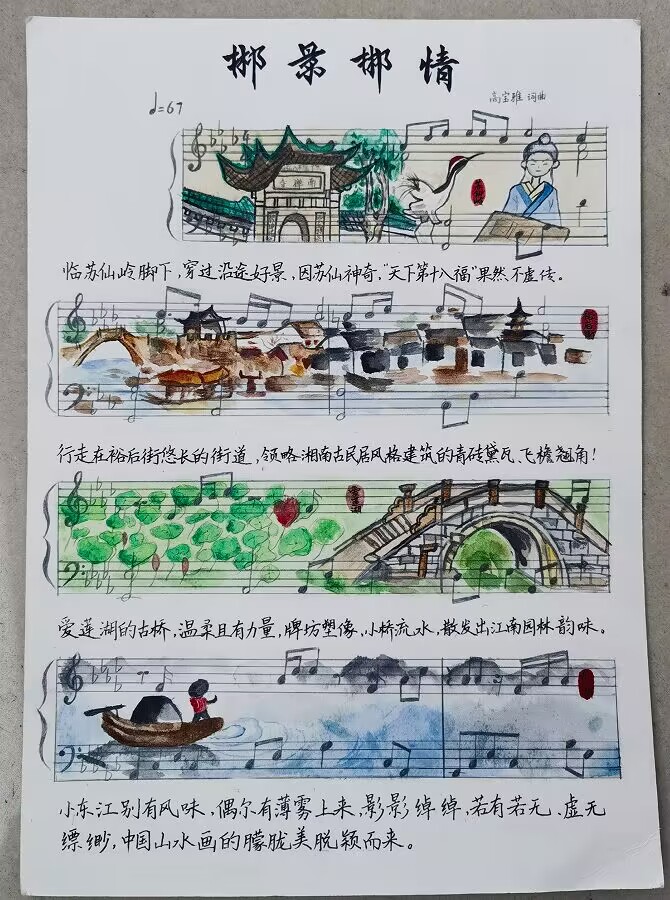 郴景郴情
♩=67
高宝雅 词曲
南禅寺
临苏仙岭脚下,穿过沿途好景,因苏仙神奇,“天下第十八福”果然不虚传。
行走在裕后街悠长的街道,领略湘南古民居风格建筑的青砖黛瓦、飞檐翘角!
爱莲湖的古桥,温柔且有力量,牌坊塑像,小桥流水,散发出江南园林韵味。
小东江别有风味,偶尔有薄雾上来,影影绰绰,若有若无、虚无
缥缈,中国山水画的朦胧美脱颖而来。